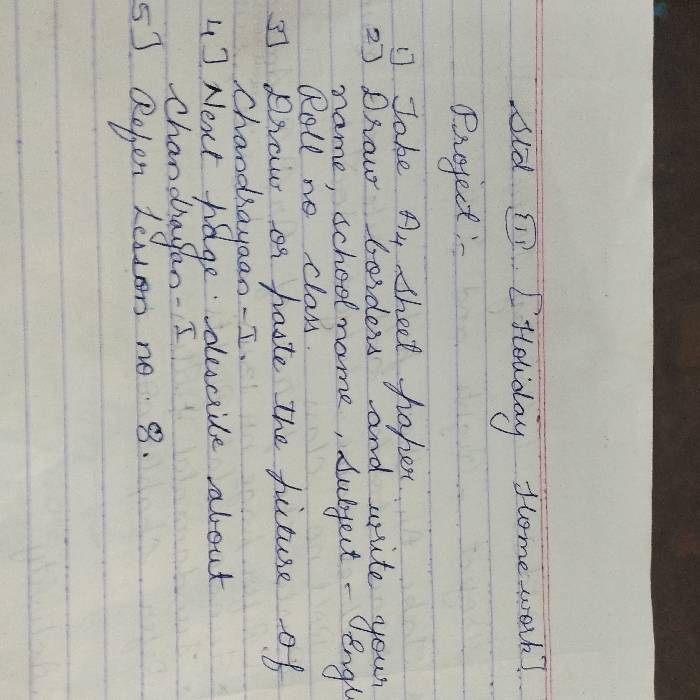 Std III. [Holiday Homework]
Project :-
1) Take A4 Sheet paper.
2) Draw borders and write your
name, school name, Subject - Engl
Roll no class.
3] Draw or paste the picture of
Chandrayaan - I.
4] Next page. describe about
Chandrayan - I
5] Refer Lesson no. 8.